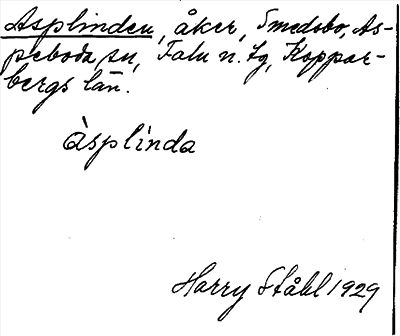 Asplinden, åker, Smedsbo, As-
peboda sn, Falu n. tg, Koppar-
bergs län.
àsplinda
Harry Ståhl 1929